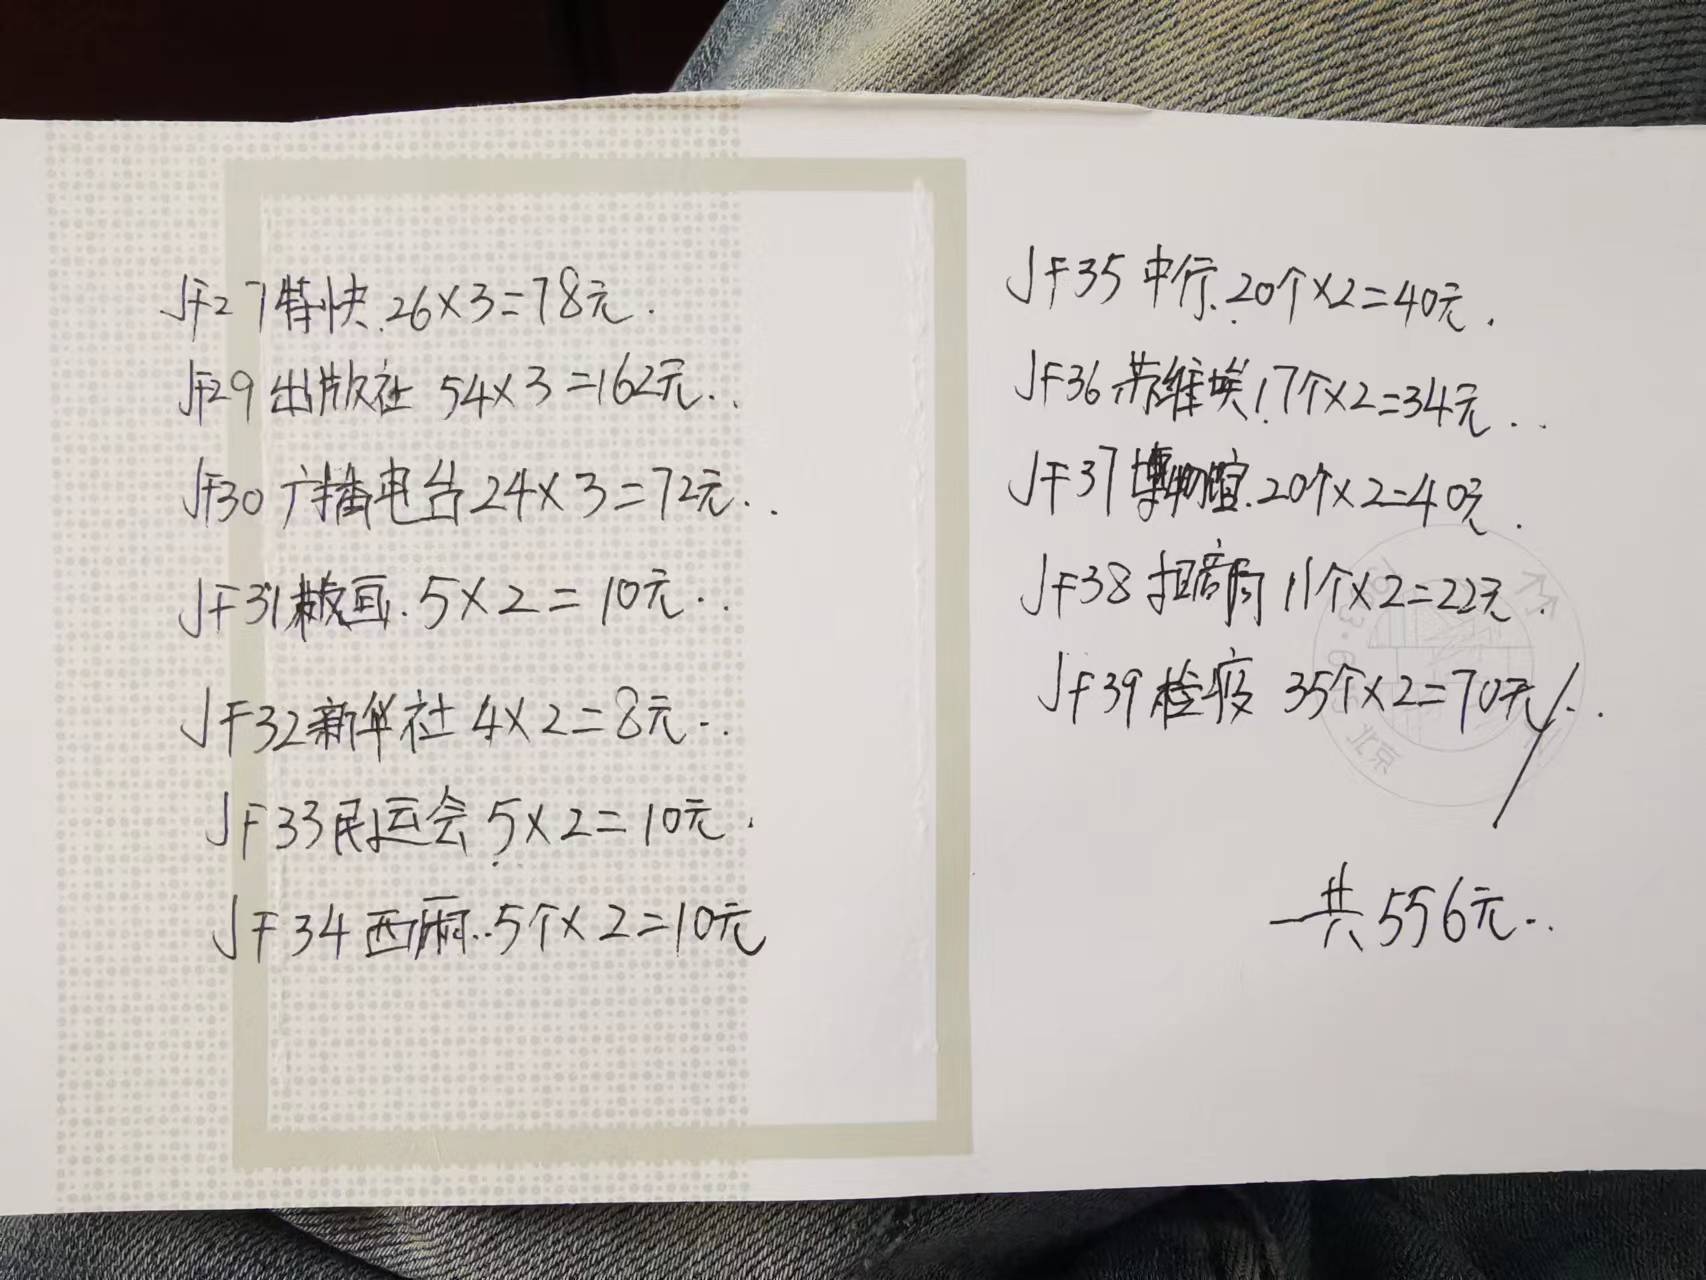 JF27特快.26×3=78元.
JF29出版社 54×3=162元..
JF30广播电台24×3=72元..
JF31板画.5×2=10元..
JF32新华社4×2=8元..
JF33民运会5×2=10元.
JF34西丽..5个×2=10元
JF35中行.20个×2=40元.
JF36苏维埃17个×2=34元..
JF37博物馆.20个×2=40元.
JF38招商局11个×2=22元.
JF39检疫 35个×2=70元/..
一共556元..
北京